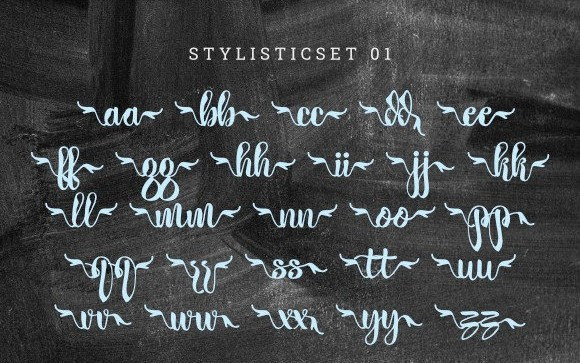 STYLISTICSET 01
aa bb cc dd ee
ff gg hh ii jj kk
ll mm nn oo pp
qq rr ss tt uu
vv ww xx yy zz